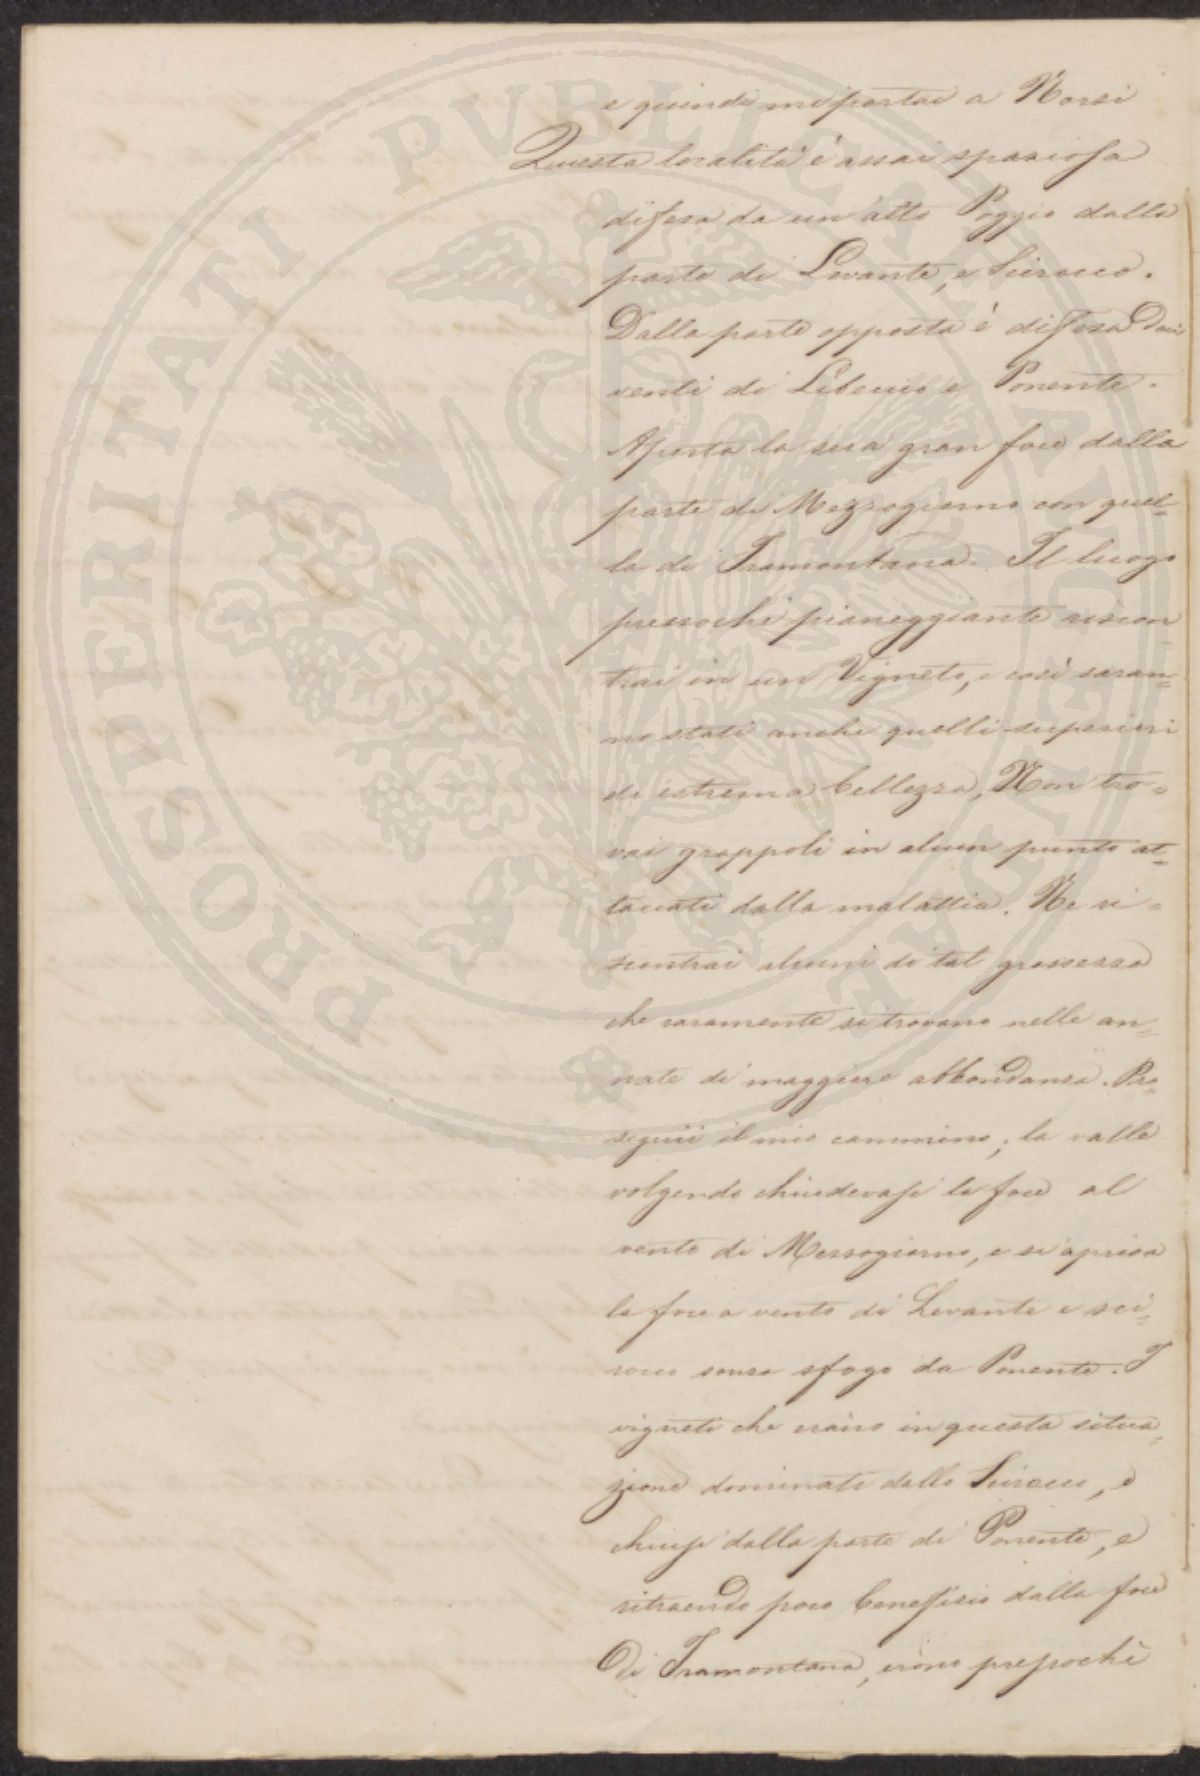 e quindi mi portai a Norsi
Questa località è assai spaziosa
difesa da un'alto Poggio dalla
parte di Levante, e Scirocco.
Dalla parte opposta è difesa dai
venti di Libeccio e Ponente.
Aperta la sua gran foce dalla
parte di Mezzogiorno con quel=
la di Tramontana. Il luogo
pressochè pianeggiante riscon=
trai in un Vigneto, e così saran=
no stati anche quelli superiori
di estrema bellezza, Non tro=
vai grappoli in alcun punto at=
taccati dalla malattia. Ne ri=
scontrai alcuni di tal grossezza
che raramente si trovano nelle an=
nate di maggiore abbondanza. Pro=
seguii il mio cammino; la valle
volgendo chiudevasi la foce al
vento di Mezzogiorno, e si apriva
la foce a vento di Levante e sci=
rocco senza sfogo da Ponente. I
vigneti che erano in questa situa=
zione dominati dallo Scirocco, e
chiusi dalla parte di Ponente, e
ritraendo poco beneficio dalla foce
Di Tramontana, erano pressochè
PROSPERITATI PUBLICAE AUGENDAE